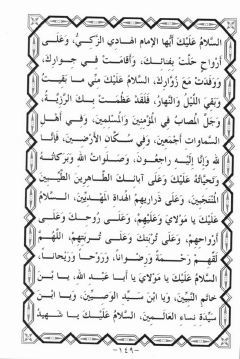 السَّلامُ عَلَيْكَ أَيُّها الإمام الهادي الزَّكيُّ، وَعَلَى
أَرْواحٍ حَلَّتْ بِفِنائِكَ، وَأَقامَتْ في جِوارِكَ،
وَوَفَدَتْ مَعَ زُوَّارِكَ. السَّلامُ عَلَيْكَ مِنِّي ما بَقيتُ
وَبَقِيَ اللَّيْلُ وَالنَّهارُ، فَلَقَدْ عَظُمَتْ بِكَ الرَّزِيَّةُ،
وَجَلَّ الْمُصابُ في الْمُؤمِنينَ وَالْمُسلِمينَ، وَفي أهلِ
السَّماواتِ أَجْمَعينَ، وَفي سُكَّانِ الأَرَضينَ، فَإِنَّا
لله وَإِنَّا إِلَيْهِ راجِعُونَ، وَصَلَواتُ الله وَبَرَكاتُهُ
وَتَحِيَّاتُهُ عَلَيْكَ وَعَلَى آبائِكَ الطَّاهِرينَ الطَّيِّبينَ
الْمُنْتَجَبينَ، وَعَلَى ذَراريهِمُ الْهُداةِ الْمَهْدِيّينَ، السَّلامُ
عَلَيْكَ يا مَوْلايَ وَعَلَيْهِمْ، وَعَلَى رُوحِكَ وَعَلَى
أَرْواحِهِمْ، وَعَلَى تُرْبَتِكَ وَعَلَى تُرْبَتِهِمْ، اللَّهُمَّ
لَقِّهِمْ رَحْمَةً وَرِضْواناً، وَرَوْحاً وَرَيْحاناً،
السَّلامُ عَلَيْكَ يا مَوْلايَ يا أبا عَبدِ الله، يا بْنَ
خاتَمِ النَّبِيِّينَ، وَيا ابْنَ سَيِّدِ الْوَصِيِّينَ، وَيا ابْنَ
سَيِّدَةِ نِساءِ الْعالَمينَ، السَّلامُ عَلَيْكَ يا شَهيدُ
-١٤٩-